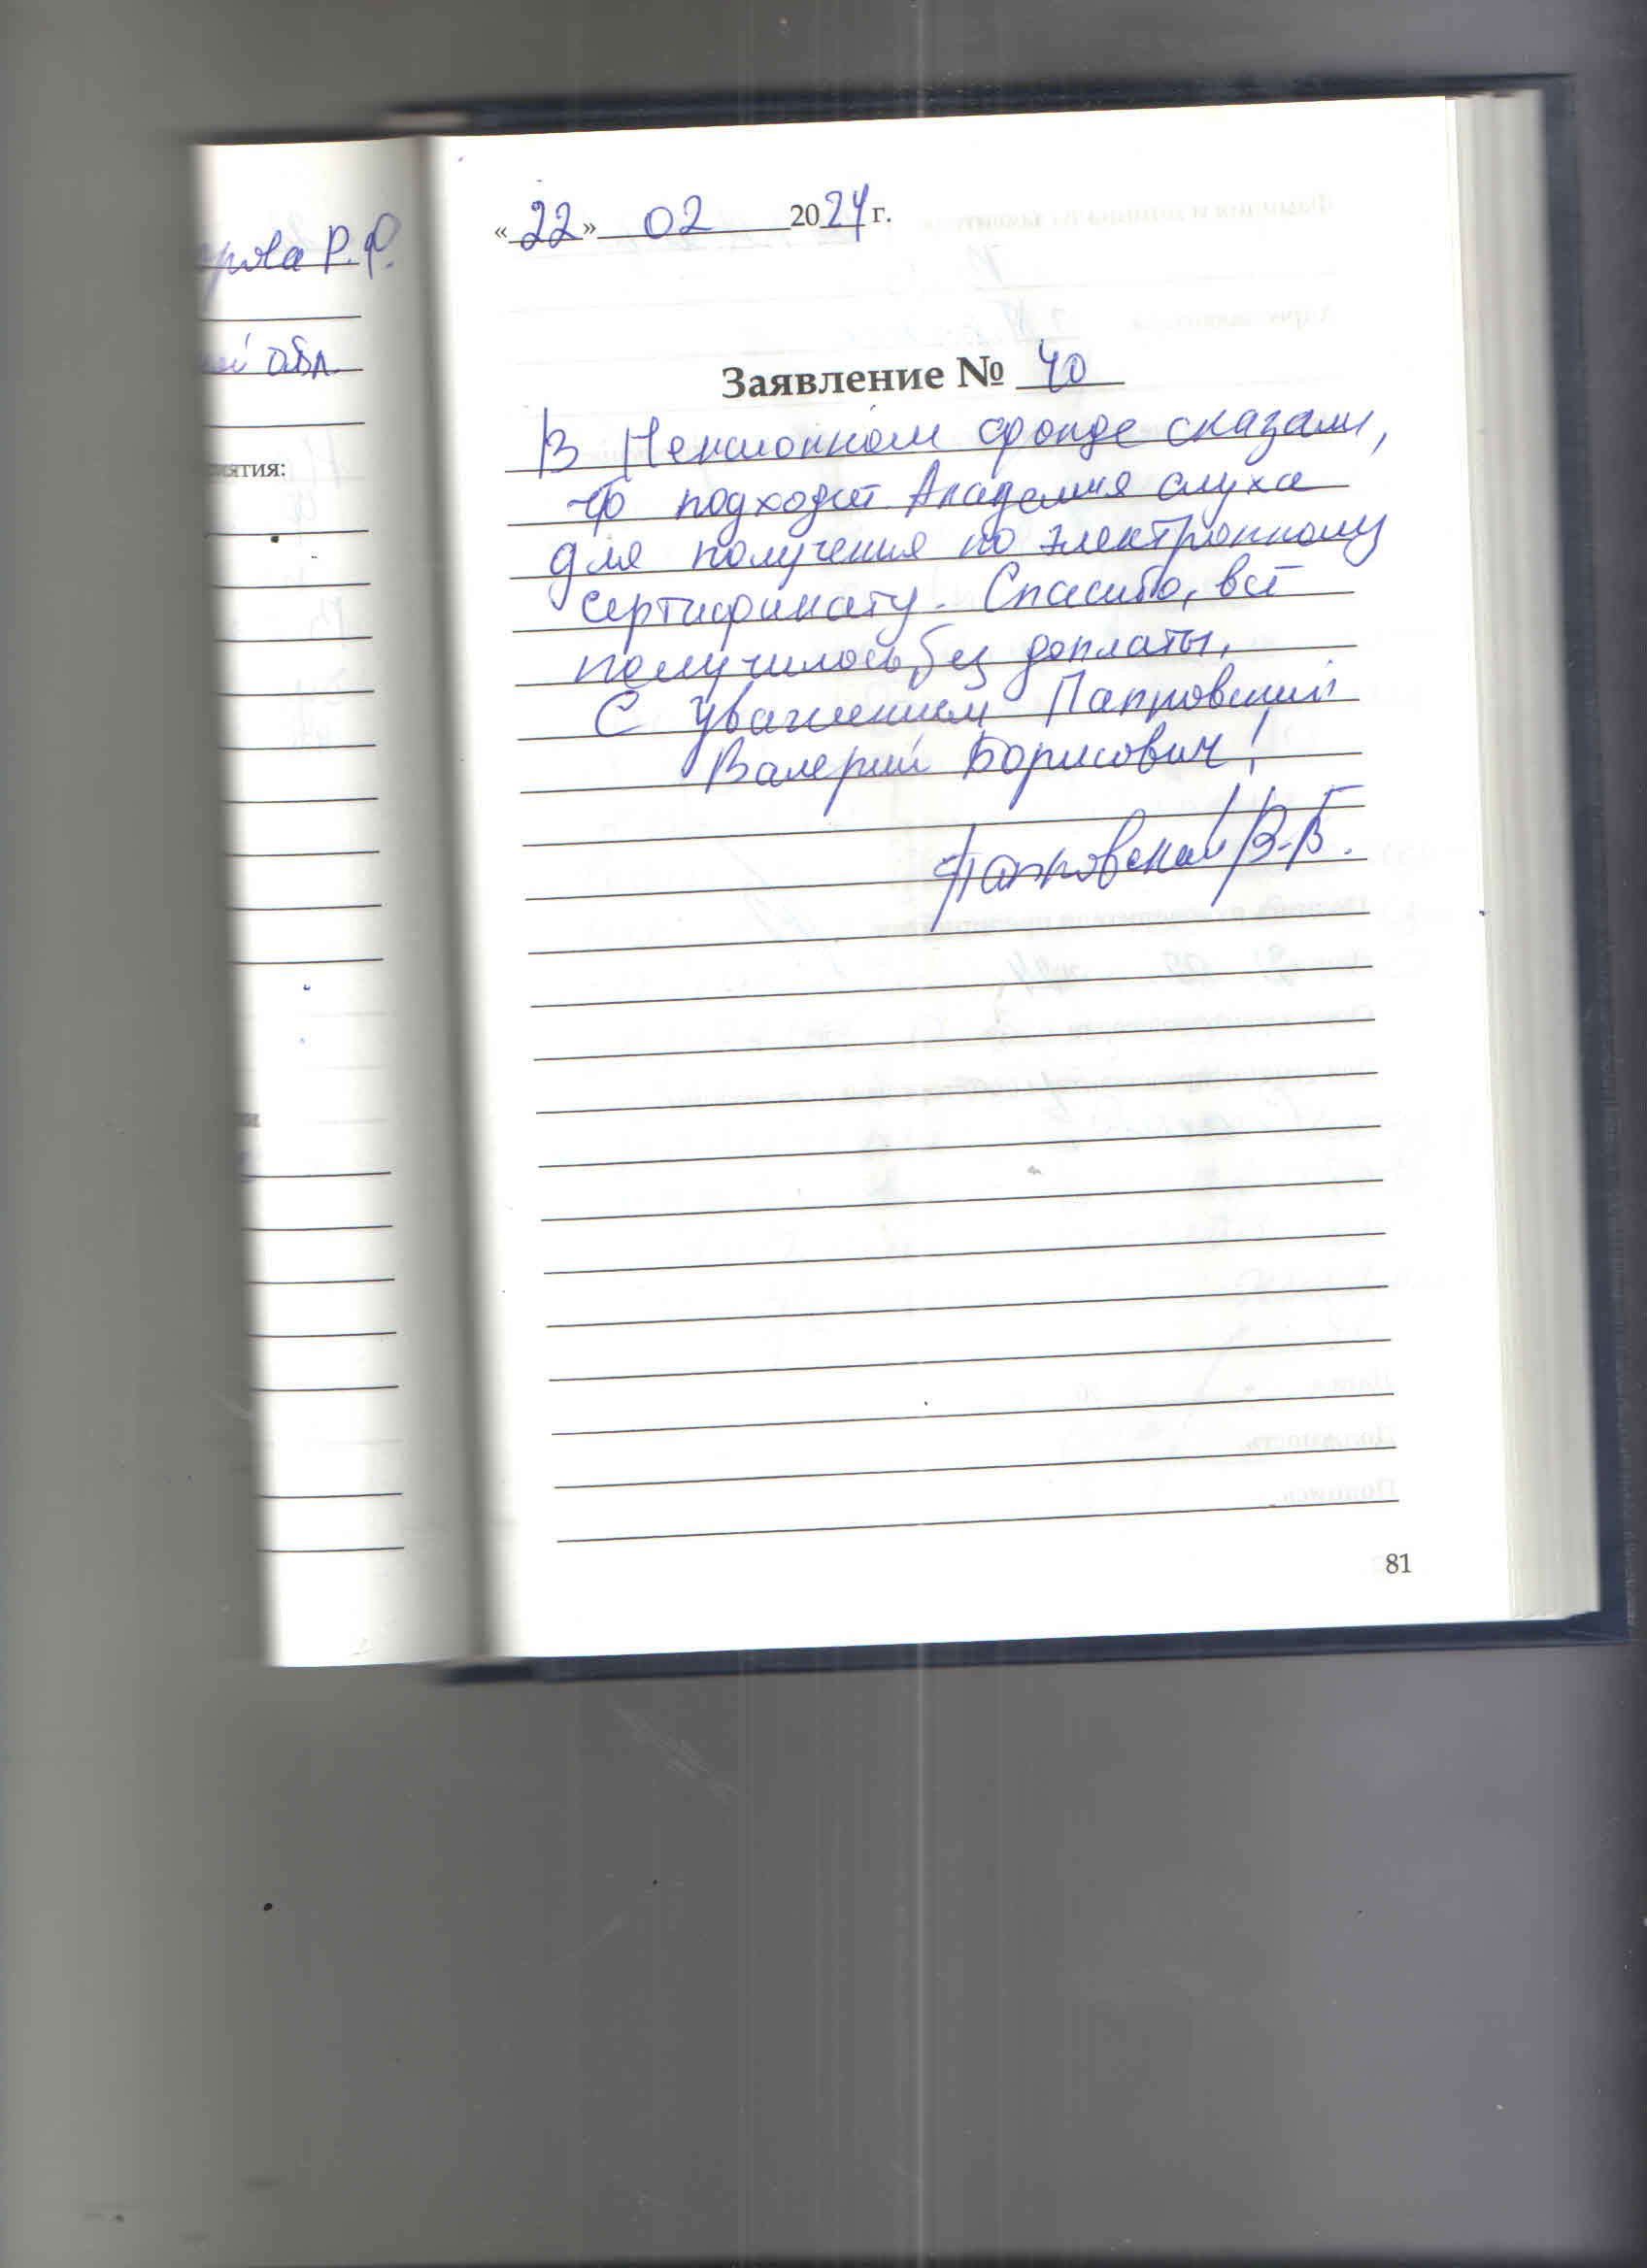 рова Р.Ф.
ой обл.
иятия:
«22» 02 2024 г.
Заявление № 40
В Пенсионном фонде сказали,
что подходит Академия слуха
для получения по электронному
сертификату. Спасибо, всё
получилось без доплаты,
С уважением Папковский
Валерий Борисович!
Папковский В.Б.
81